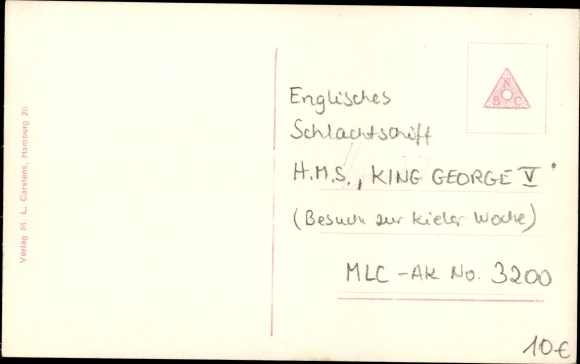 Verlag M. L. Carstens, Hamburg 20
N
B C
Englisches
Schlachtschiff
H.M.S. "KING GEORGE V"
(Besuch zur Kieler Woche)
MLC - AK No. 3200
10€